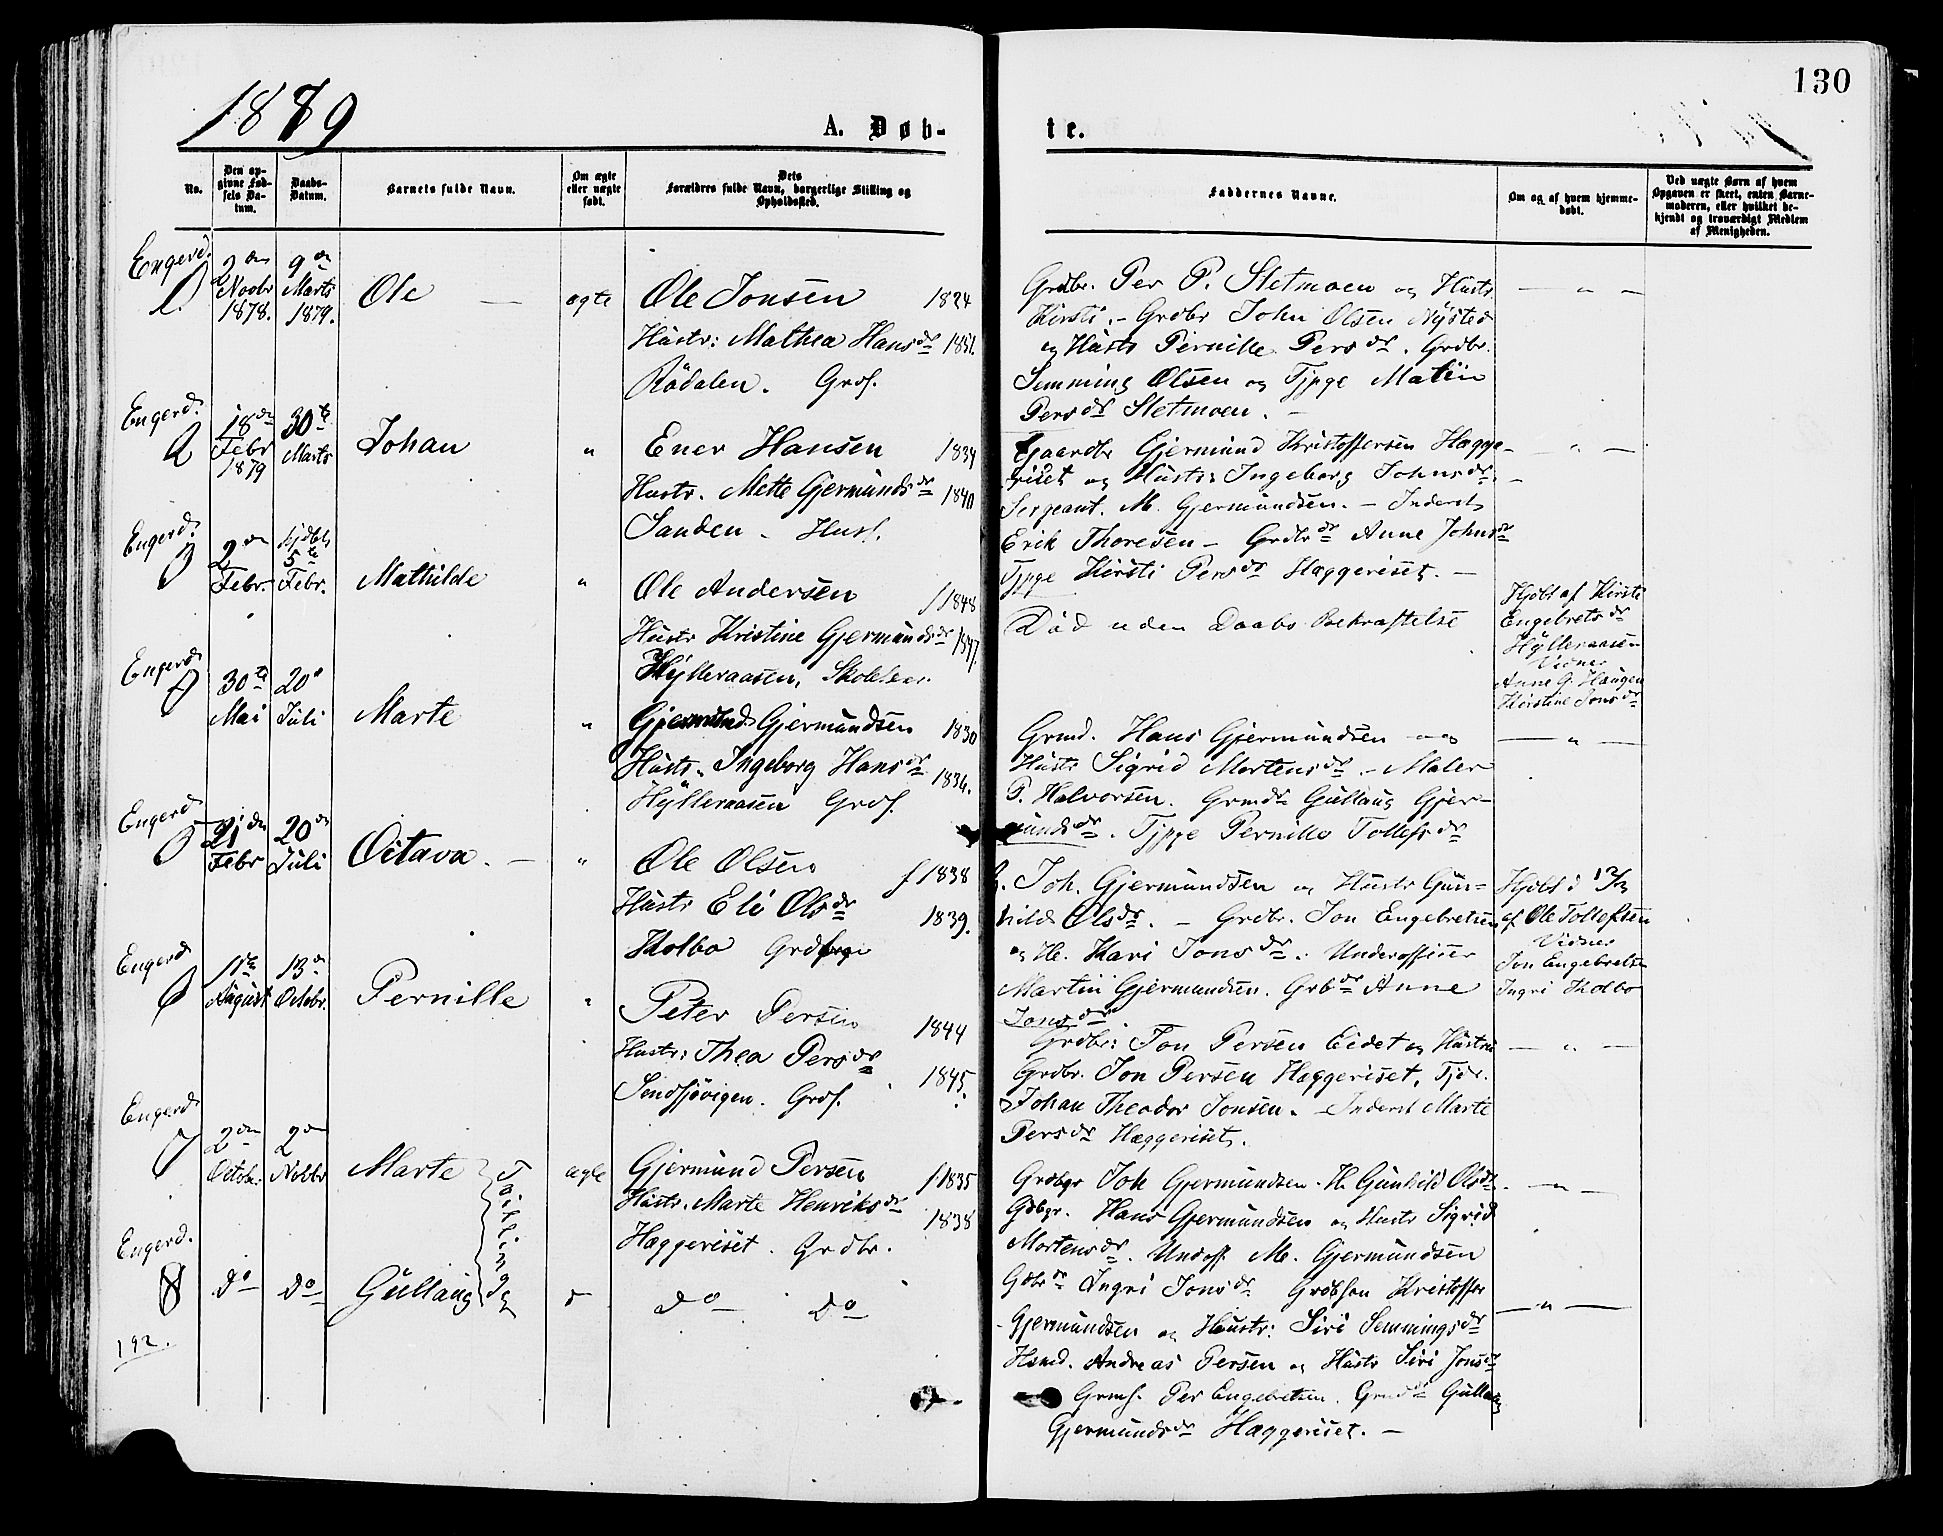 130
1879
A. Døb-
te.
No.
Den op-
givne Fød-
sels Da-
tum.
Daabs-
Datum.
Barnets fulde Navn.
Om ægte
eller uægte
født.
Dets
Forældres fulde Navn, borgerlige Stilling og
Opholdssted.
Faddernes Navne.
Om og af hvem hjemme-
døbt.
Ved uægte Børn af hvem
Opgaven er skeet, enten Barne-
moderen, eller hvilket be-
kjendt og troværdigt Medlem
af Menigheden.
Engerd.
1.
2den
Novbr
1878.
9de
Marts
1879.
Ole —
ægte
Ole Jonsen 1824
Hustr: Mathea Hansdr 1851.
Rødalen. Grdf.
Grdbr. Per P. Sletmoen og Hustr
Kirsti. - Grdbr John Olsen Nysted
og Hustr Pernille Persdr. Grdbr.
Semming Olsen og Tjpge Matin
Persdr Sletmoen. -
— " —
Engerd.
2
18de
Febr
1879
30te
Marts
Johan
"
Ener Hansen 1834
Hustr. Mette Gjermundsdr 1840
Sanden - Husf.
Gaardbr Gjermund Kristoffersen Hægge-
riset og Hustr: Ingeborg Johnsdr. -
Sergeant. M. Gjermundsen. - Inderst
Erik Thoresen - Grdbrdr Anne Johnsdr
Tjpge Kirsti Persdr Hæggeriset. -
— " —
Engerd.
3
2den
Febr.
hjdbt
5te
Febr.
Mathilde
"
Ole Andersen f 1848
Hustr Kristine Gjermundsdr 1847.
Hylleraasen, Skolelær.
Død uden Daabs Bekræftelse
Hjdbt af Kirsti
Engebretsdr
Hylleraasen
Vidner
Anne G. Haugen
Kirstine Jonsdr
Engerd.
4
30te
Mai
20de
Juli
Marte
"
Gjermund Gjermundsen 1830
Hustr. Ingeborg Hansdr 1836.
Hylleraasen Grdf.
Grmd. Hans Gjermundsen og
Hustr Sigrid Mortensdr. - Maler
P. Halvorsen. Grmdr Gullaug Gjer-
mundsdr. Tjpge Pernille Tollefsdr
— " —
Engerd.
5
21de
Febr
20de
Juli
Octava. —
"
Ole Olsen f 1838
Hustr Eli Olsdr 1839.
Kolbo
G. Joh. Gjermundsen og Hustr Gun-
hild Olsdr. - Grdbr. Jon Engebretsen
og H. Kari Jonsdr. Underofficer
Martin Gjermundsen. Grbdr Anne
Jonsdr.
Hjdbt d 12/3
af Ole Tollefsen
Vidner
Jon Engebretsen
Ingri Kolbo
Engerd.
6
11te
August
13de
Octobr.
Pernille
"
Peter Persen 1844
Hustr: Thea Persdr 1845.
Sendsjøvigen. Grdf.
Grdbr: Jon Persen Eidet og Hustru
Grdbr. Jon Persen Hæggeriset,
Johan Theodor Jonsen. - Inderst Marte
Persdr Hæggeriset.
— " —
Engerd.
7
2den
Octobr.
2den
Novbr
Marte
Tvillinger
ægte
Gjermund Persen f 1835
Hustr. Marte Henriksdr 1838
Hæggeriset. Grdbr.
Grdbgr Joh Gjermundsen. H. Gunhild Olsdr.
Gdbgr. Hans Gjermundsen og Hustr Sigrid
Mortensdr. Undoff. M. Gjermundsen
Gdbrdr Ingri Jonsdr Grdbson Kristoffer
— " —
Engerd.
8
do
do
Gullaug
do do
Gjermundsen og Hustr: Siri Semmingsdr
Hsmd. Andreas Persen og Hustr Siri Jonsdr
Grmf. Per Engebretsen. Grmdr Gullaug
Gjermundsdr Hæggeriset. -
— " —
192.